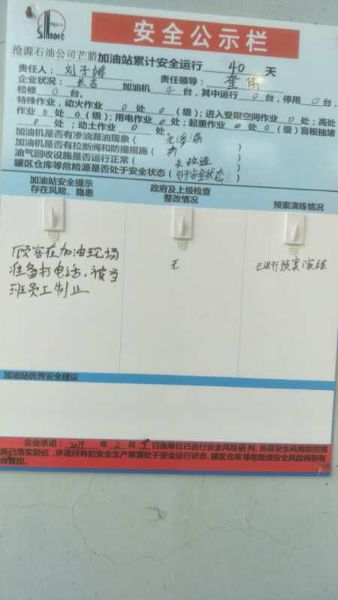 SINOPEC
安全公示栏
沧源石油公司芒腊加油站累计安全运行 40 天
责任人：刘子 责任领导：李
企业状况： 加油机 4 台，其中运行 0 台，停用 0 台，
检修 0 台。
特殊作业，动火作业 0 处 0（级）；进入受限空间作业 0 处；高处
作业 0 处 0（级）；用电作业 0 处；起重作业 0 处 0（级）；盲板抽堵
0 处；动土作业 0 处
加油机是否有渗油漏油现象（无渗漏）
加油机是否有拉断阀和防撞措施（有）
油气回收设施是否运行正常（未改造）
罐区仓库等危险源是否处于安全状态（处于安全状态）
加油站安全提示
存在风险、隐患
政府及上级检查
整改情况
预案演练情况
顾客在加油现场
准备打电话，被当
班员工制止
无
已进行预案演练
加油站优秀安全建议
企业承诺：2019 年 2 月 日我单位已进行安全风险研判，各项安全风险防控措
施已落实到位，承诺所有的安全生产装置处于安全运行状态，罐区仓库等危险源安全风险得到有
效管控。